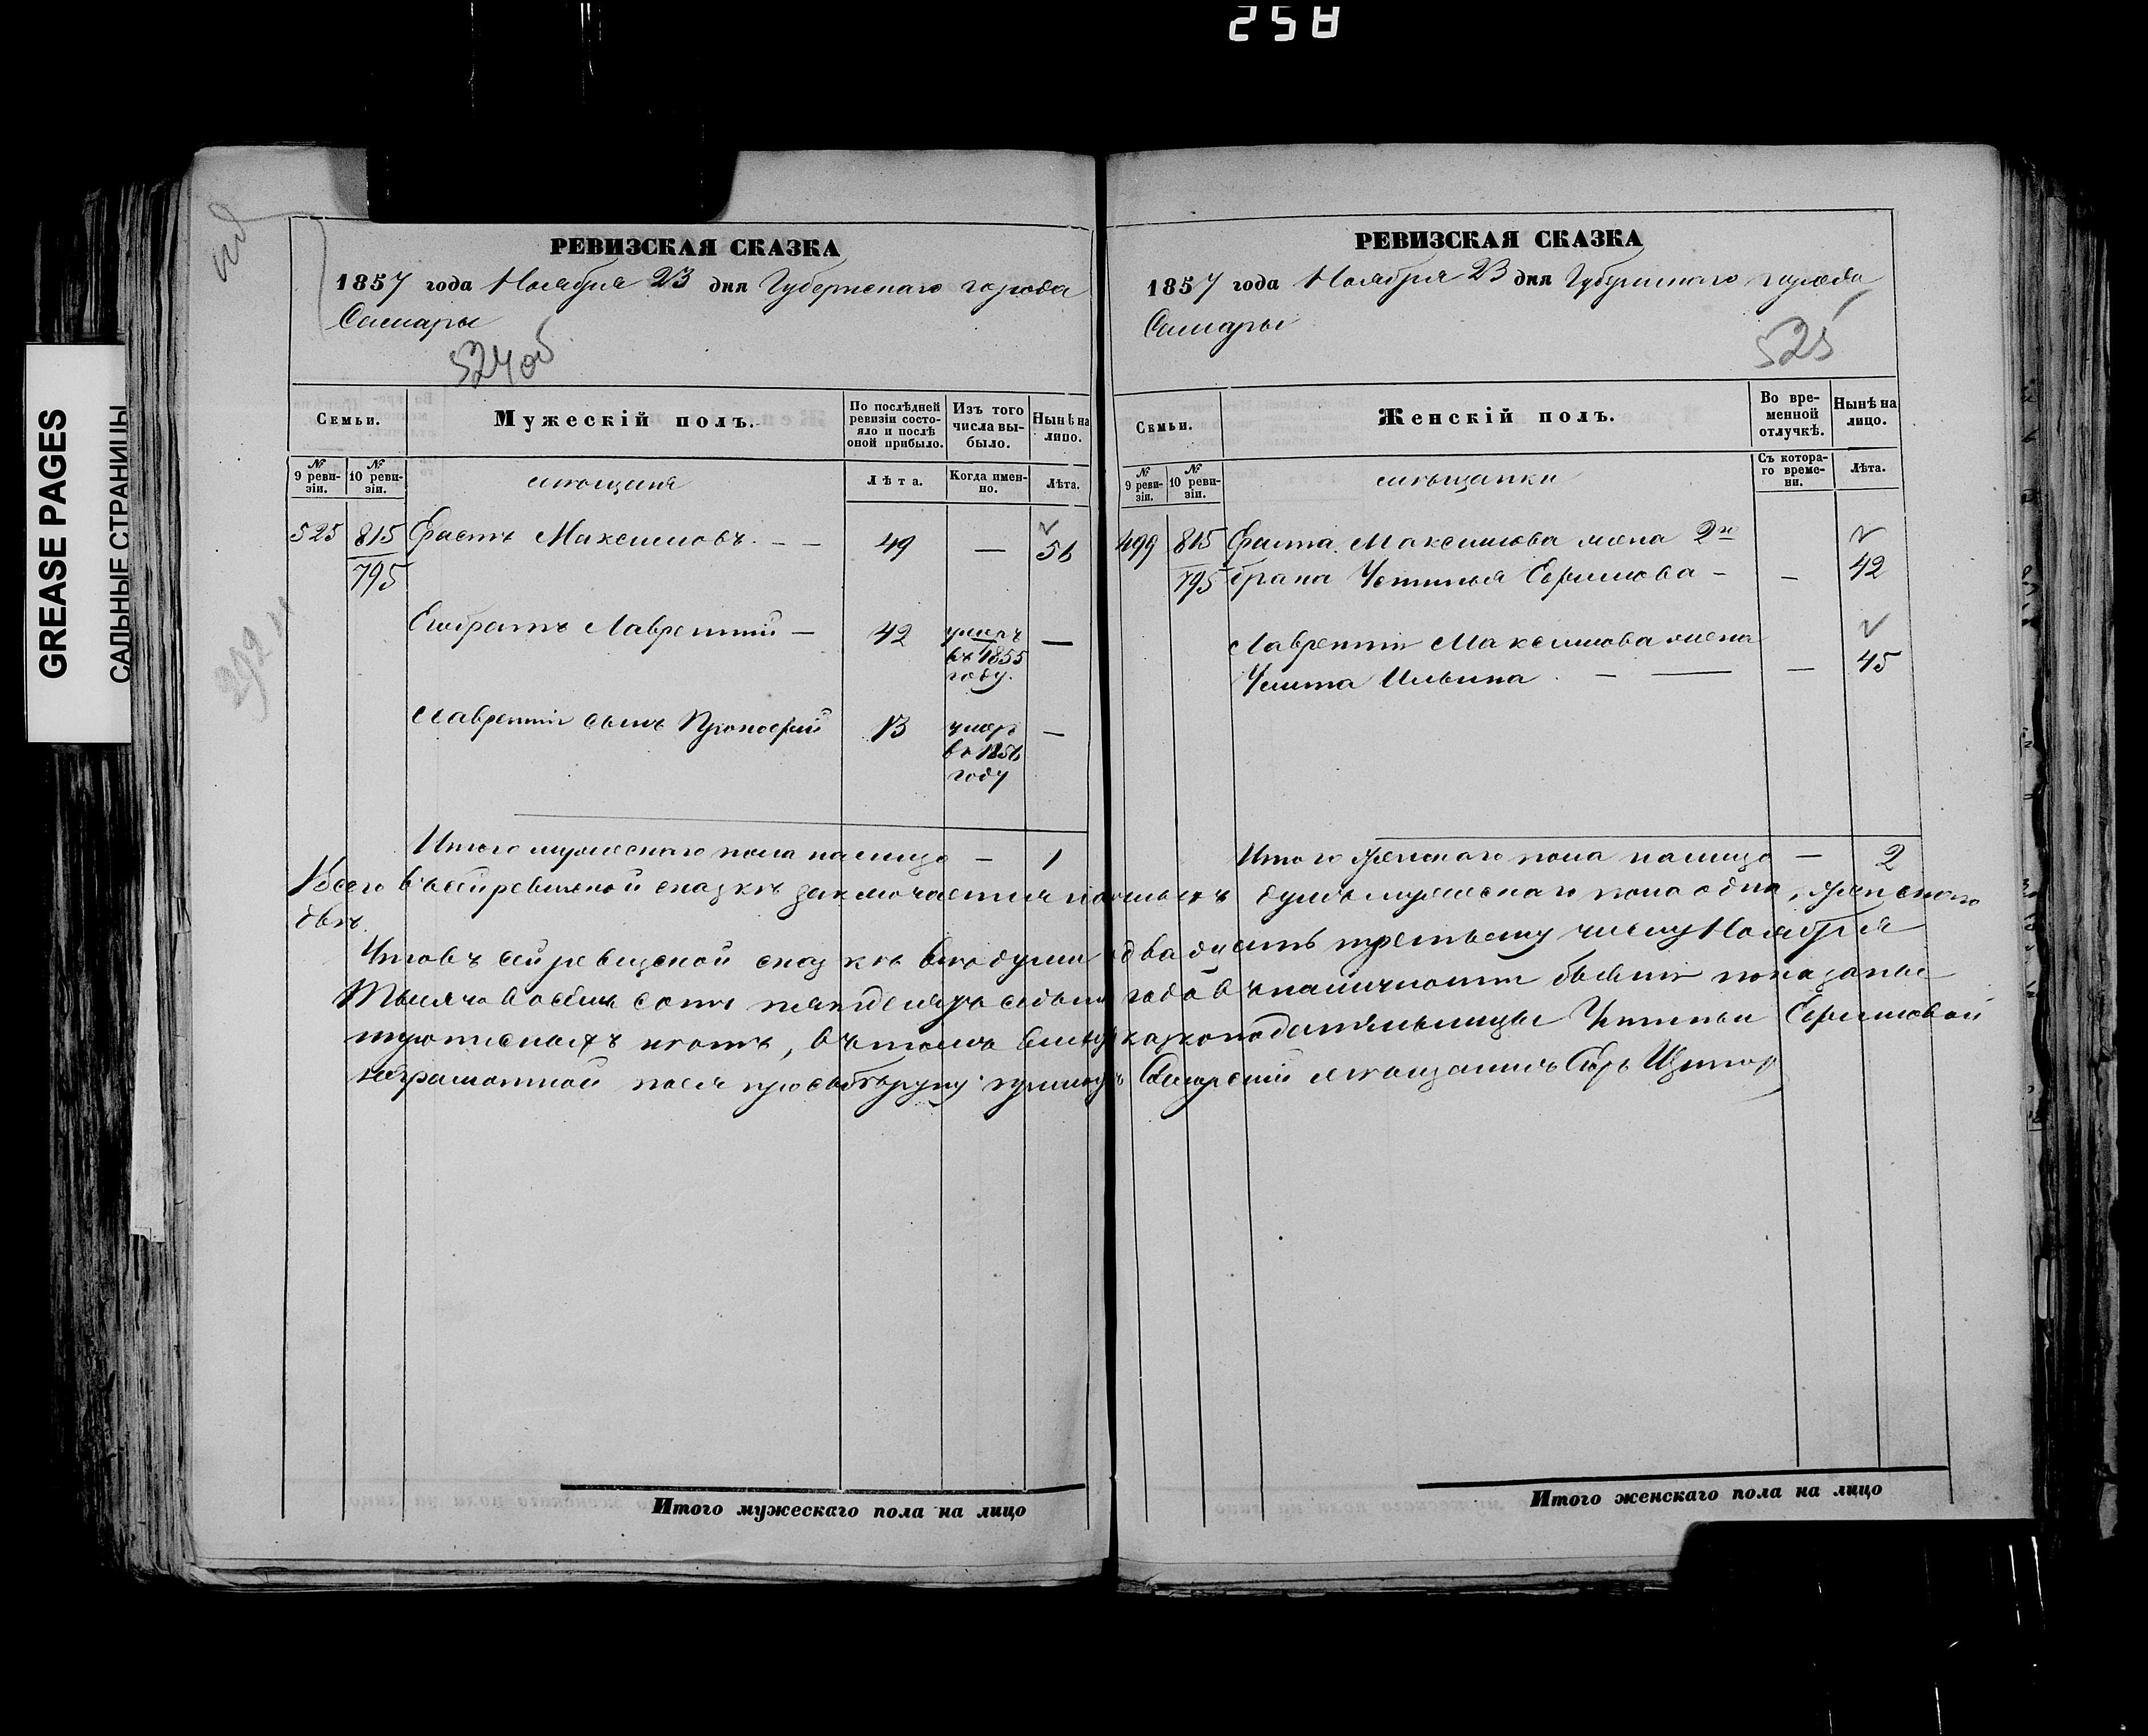 258
GREASE PAGES
САЛЬНЫЕ СТРАНИЦЫ
РЕВИЗСКАЯ СКАЗКА
1857 года Ноября 23 дня Губернскаго города
Самары
524об
Семьи.
Мужескій полъ.
По послѣдней ревизіи состояло и послѣ оной прибыло.
Изъ того числа выбыло.
Нынѣ на лицо.
№ 9 ревизіи.
№ 10 ревизіи.
мѣщане
Лѣта.
Когда именно.
Лѣта.
525 815 Ерастъ Максимовъ - - 49 — 56
795
Ег. братъ Лаврентій — 42 умеръ —
въ 1855
году.
Лаврентія сынъ Прокофій 13 умеръ —
въ 1856
году
Итого мужескаго пола налицо — 1
РЕВИЗСКАЯ СКАЗКА
1857 года Ноября 23 дня Губернскаго города
Самары
525
Семьи.
Женскій полъ.
Во временной отлучкѣ.
Нынѣ на лицо.
№ 9 ревизіи.
№ 10 ревизіи.
мѣщанки
Съ котораго времени.
Лѣта.
499 815 Ераста Максимова жена 2го
795 брака Устинья Ефимова - — 42
Лаврентія Максимова жена
Ульита Ильина - — — 45
Итого женскаго пола налицо — 2
Всего въ сей ревизской сказкѣ заключается наличныхъ душъ мужескаго пола одна, женскаго
двѣ.
Что въ сей ревизской сказкѣ всѣ души двадцать третьему числу Ноября
Тысяча восемь сотъ пятьдесятъ седьмаго года въ наличности бывшія показаны
прописныхъ нѣтъ, въ томъ вмѣсто сказкоподательницы Устиньи Ефимовой
неграмотной по ея прозьбѣ руку приложилъ Самарскій мѣщанинъ
Итого мужескаго пола на лицо
Итого женскаго пола на лицо